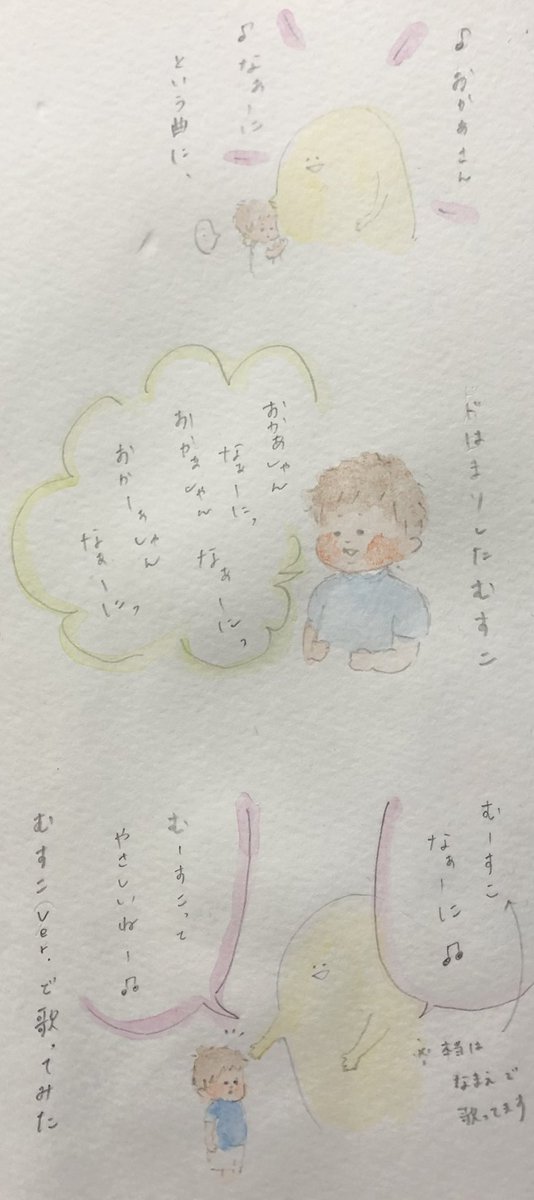 ♪おかあさん
♪なぁーに
という曲に、
ドはまりしたむすこ
おかあしゃん
なぁーにっ
おかあしゃん
なぁーにっ
おかーぁしゃん
なぁーにっ
むーすこ
なぁーに♫
※本当は
なまえで
歌ってます
むーすこって
やさしいねー♫
むすこver.で歌ってみた